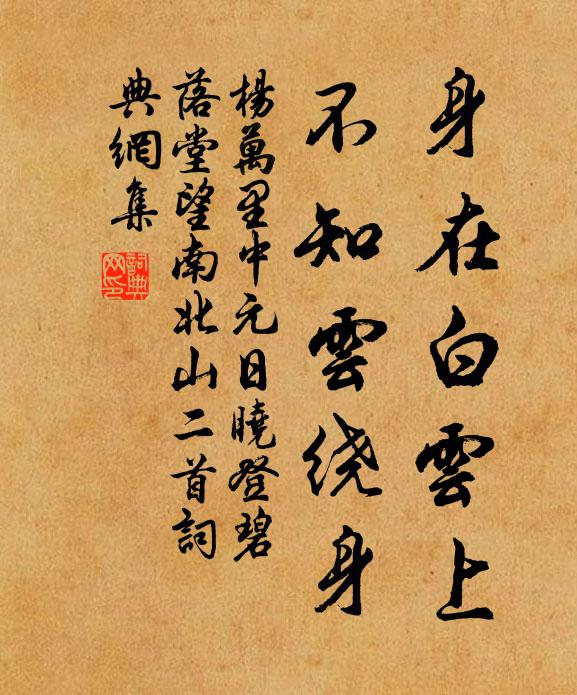 身在白雲上
不知雲绕身
楊萬里中元日曉登碧
落堂望南北山二首詞
典網集
詞典网印